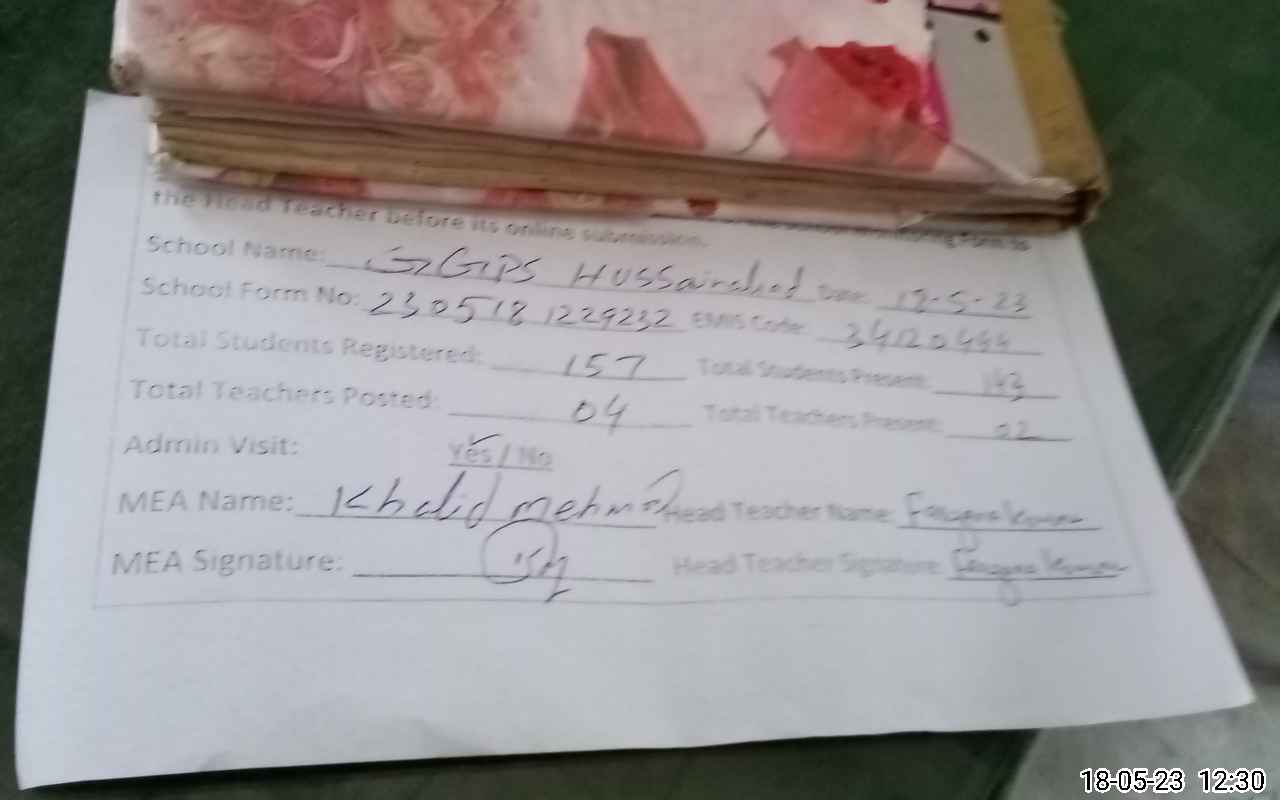 the Head Teacher before its online submission.
School Name: GGPS HUSSainabad Date: 18-5-23
School Form No: 2305181229232 EMIS Code: 34120444
Total Students Registered: 157 Total Students Present: 143
Total Teachers Posted: 04 Total Teachers Present: 02
Admin Visit: Yes / No
MEA Name: Khalid mehmood Head Teacher Name:
MEA Signature: Head Teacher Signature:
18-05-23 12:30